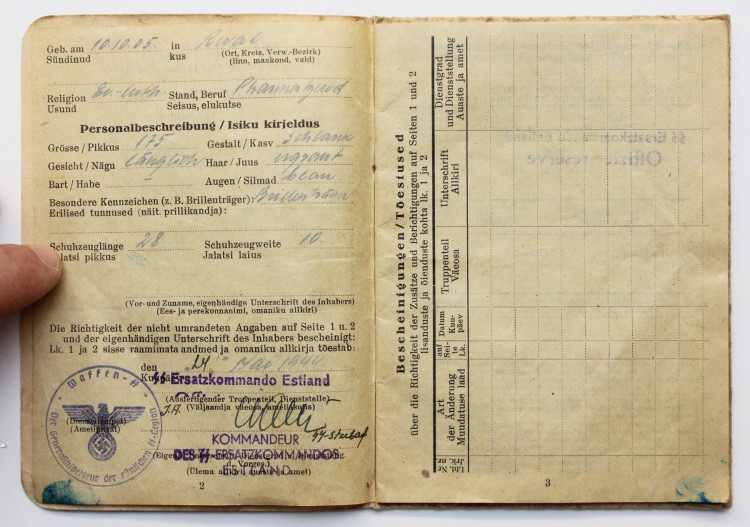 Geb. am 10.10.05. in Reval
Sündinud kus (Ort, Kreis, Verw.-Bezirk)
(linn, maakond, vald)
Religion Ev.-luth. Stand, Beruf
Usund Seisus, elukutse
Personalbeschreibung / Isiku kirjeldus
Grösse / Pikkus 175 Gestalt / Kasv schlank
Gesicht / Nägu länglich Haar / Juus
Bart / Habe Augen / Silmad blau
Besondere Kennzeichen (z. B. Brillenträger): Brillenträger
Erilised tunnused (näit. prillikandja):
Schuhzeuglänge 28 Schuhzeugweite 10.
Jalatsi pikkus Jalatsi laius
(Vor- und Zuname, eigenhändige Unterschrift des Inhabers)
(Ees- ja perekonnanimi, omaniku allkiri)
Die Richtigkeit der nicht umrandeten Angaben auf Seite 1 u. 2
und der eigenhändigen Unterschrift des Inhabers bescheinigt:
Lk. 1 ja 2 sisse raamimata andmed ja omaniku allkirja tõestab:
den "24" Mai 1944
ᛋᛋ Ersatzkommando Estland
(Ausfertigender Truppenteil, Dienststelle)
(Väljaandja väeosa, ametiasutus)
I.A.
Waffen-ᛋᛋ
Der Generalinspekteur der estnischen ᛋᛋ-Legion
(Dienststempel)
(Ametipitsat)
KOMMANDEUR
DES ᛋᛋ-ERSATZKOMMANDOS
ESTLAND
(Ülema allkiri, auaste ja amet)
2
Bescheinigungen / Tõestused
über die Richtigkeit der Zusätze und Berichtigungen auf Seiten 1 und 2
lisanduste ja õienduste kohta lk. 1 ja 2
Lfd. Nr
Jrk. nr.
Art
der Änderung
Muudatuse laad
auf
Seite
Lk.
Datum
Kuupäev
Truppenteil
Väeosa
Unterschrift
Allkiri
Dienstgrad
und Dienststellung
Auaste ja amet
3